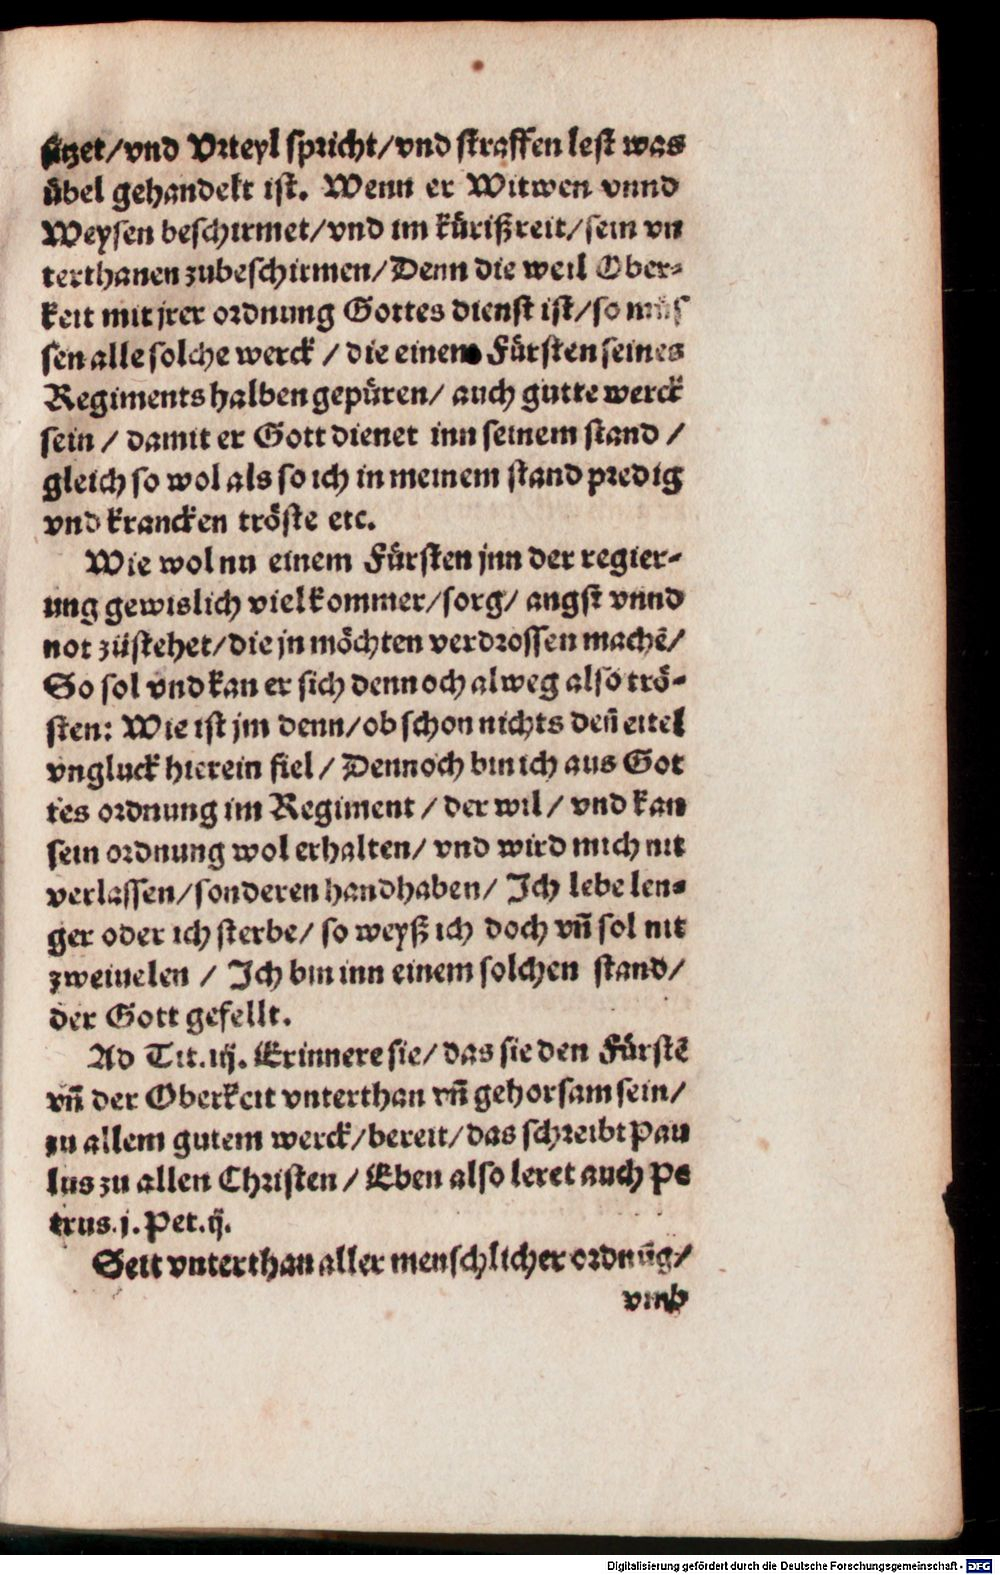 sitzet/vnd Vrteyl spricht/vnd straffen lest was
übel gehandelt ist. Wenn er Witwen vnnd
Weysen beschirmet/vnd im kürißreit/sein vn
terthanen zubeschirmen/Denn die weil Ober-
keit mit jrer ordnung Gottes dienst ist/so müs
sen alle solche werck / die einem Fürsten seines
Regiments halben gepüren/ auch gutte werck
sein / damit er Gott dienet inn seinem stand /
gleich so wol als so ich in meinem stand predig
vnd krancken tröste etc.
Wie wol nu einem Fürsten jnn der regier-
ung gewislich viel kommer/sorg/ angst vnnd
not züstehet/die jn möchten verdrossen machē/
So sol vnd kan er sich dennoch alweg also trö-
sten: Wie ist jm denn/ob schon nichts deñ eitel
vngluck hierein fiel / Dennoch bin ich aus Got
tes ordnung im Regiment / der wil / vnd kan
sein ordnung wol erhalten/ vnd wird mich nit
verlassen/sonderen handhaben/ Ich lebe len-
ger oder ich sterbe/ so weyß ich doch vñ sol nit
zweiuelen / Ich bin inn einem solchen stand/
der Gott gefellt.
Ad Tit.iij. Erinnere sie/ das sie den Fürstē
vñ der Oberkeit vnterthan vñ gehorsam sein/
zu allem gutem werck/bereit/das schreibt Pau
lus zu allen Christen / Eben also leret auch Pe
trus.j.Pet.ij.
Seit vnterthan aller menschlicher ordnũg/
vmb
Digitalisierung gefördert durch die Deutsche Forschungsgemeinschaft - DFG